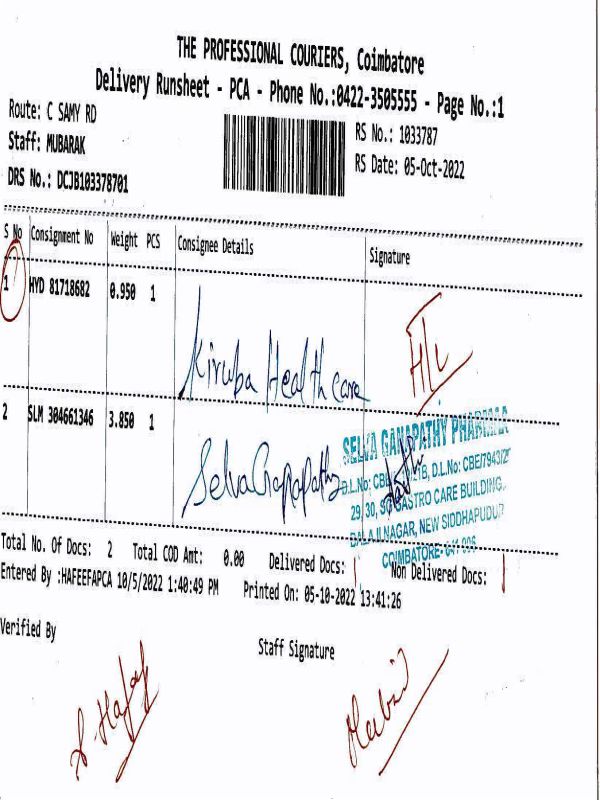 THE PROFESSIONAL COURIERS, Coimbatore
Delivery Runsheet - PCA - Phone No.:0422-3505555 - Page No.:1
Route: C SAMY RD
Staff: MUBARAK
DRS No.: DCJB103378701
RS No.: 1033787
RS Date: 05-Oct-2022
S No Consignment No Weight PCS Consignee Details Signature
1 HYD 81718682 0.950 1
Kiruba Health care
2 SLM 304661346 3.850 1
SelvaGanapathy
SELVA GANAPATHY PHARMA
D.L.No: D.L.No:
29, 30, GASTRO CARE BUILDING,
BALAJI NAGAR, NEW SIDDHAPUDUR
COIMBATORE-
Total No. Of Docs: 2 Total COD Amt: 0.00 Delivered Docs: 1 Non Delivered Docs: 1
Entered By :HAFEEFAPCA 10/5/2022 1:40:49 PM Printed On: 05-10-2022 13:41:26
Verified By
Staff Signature